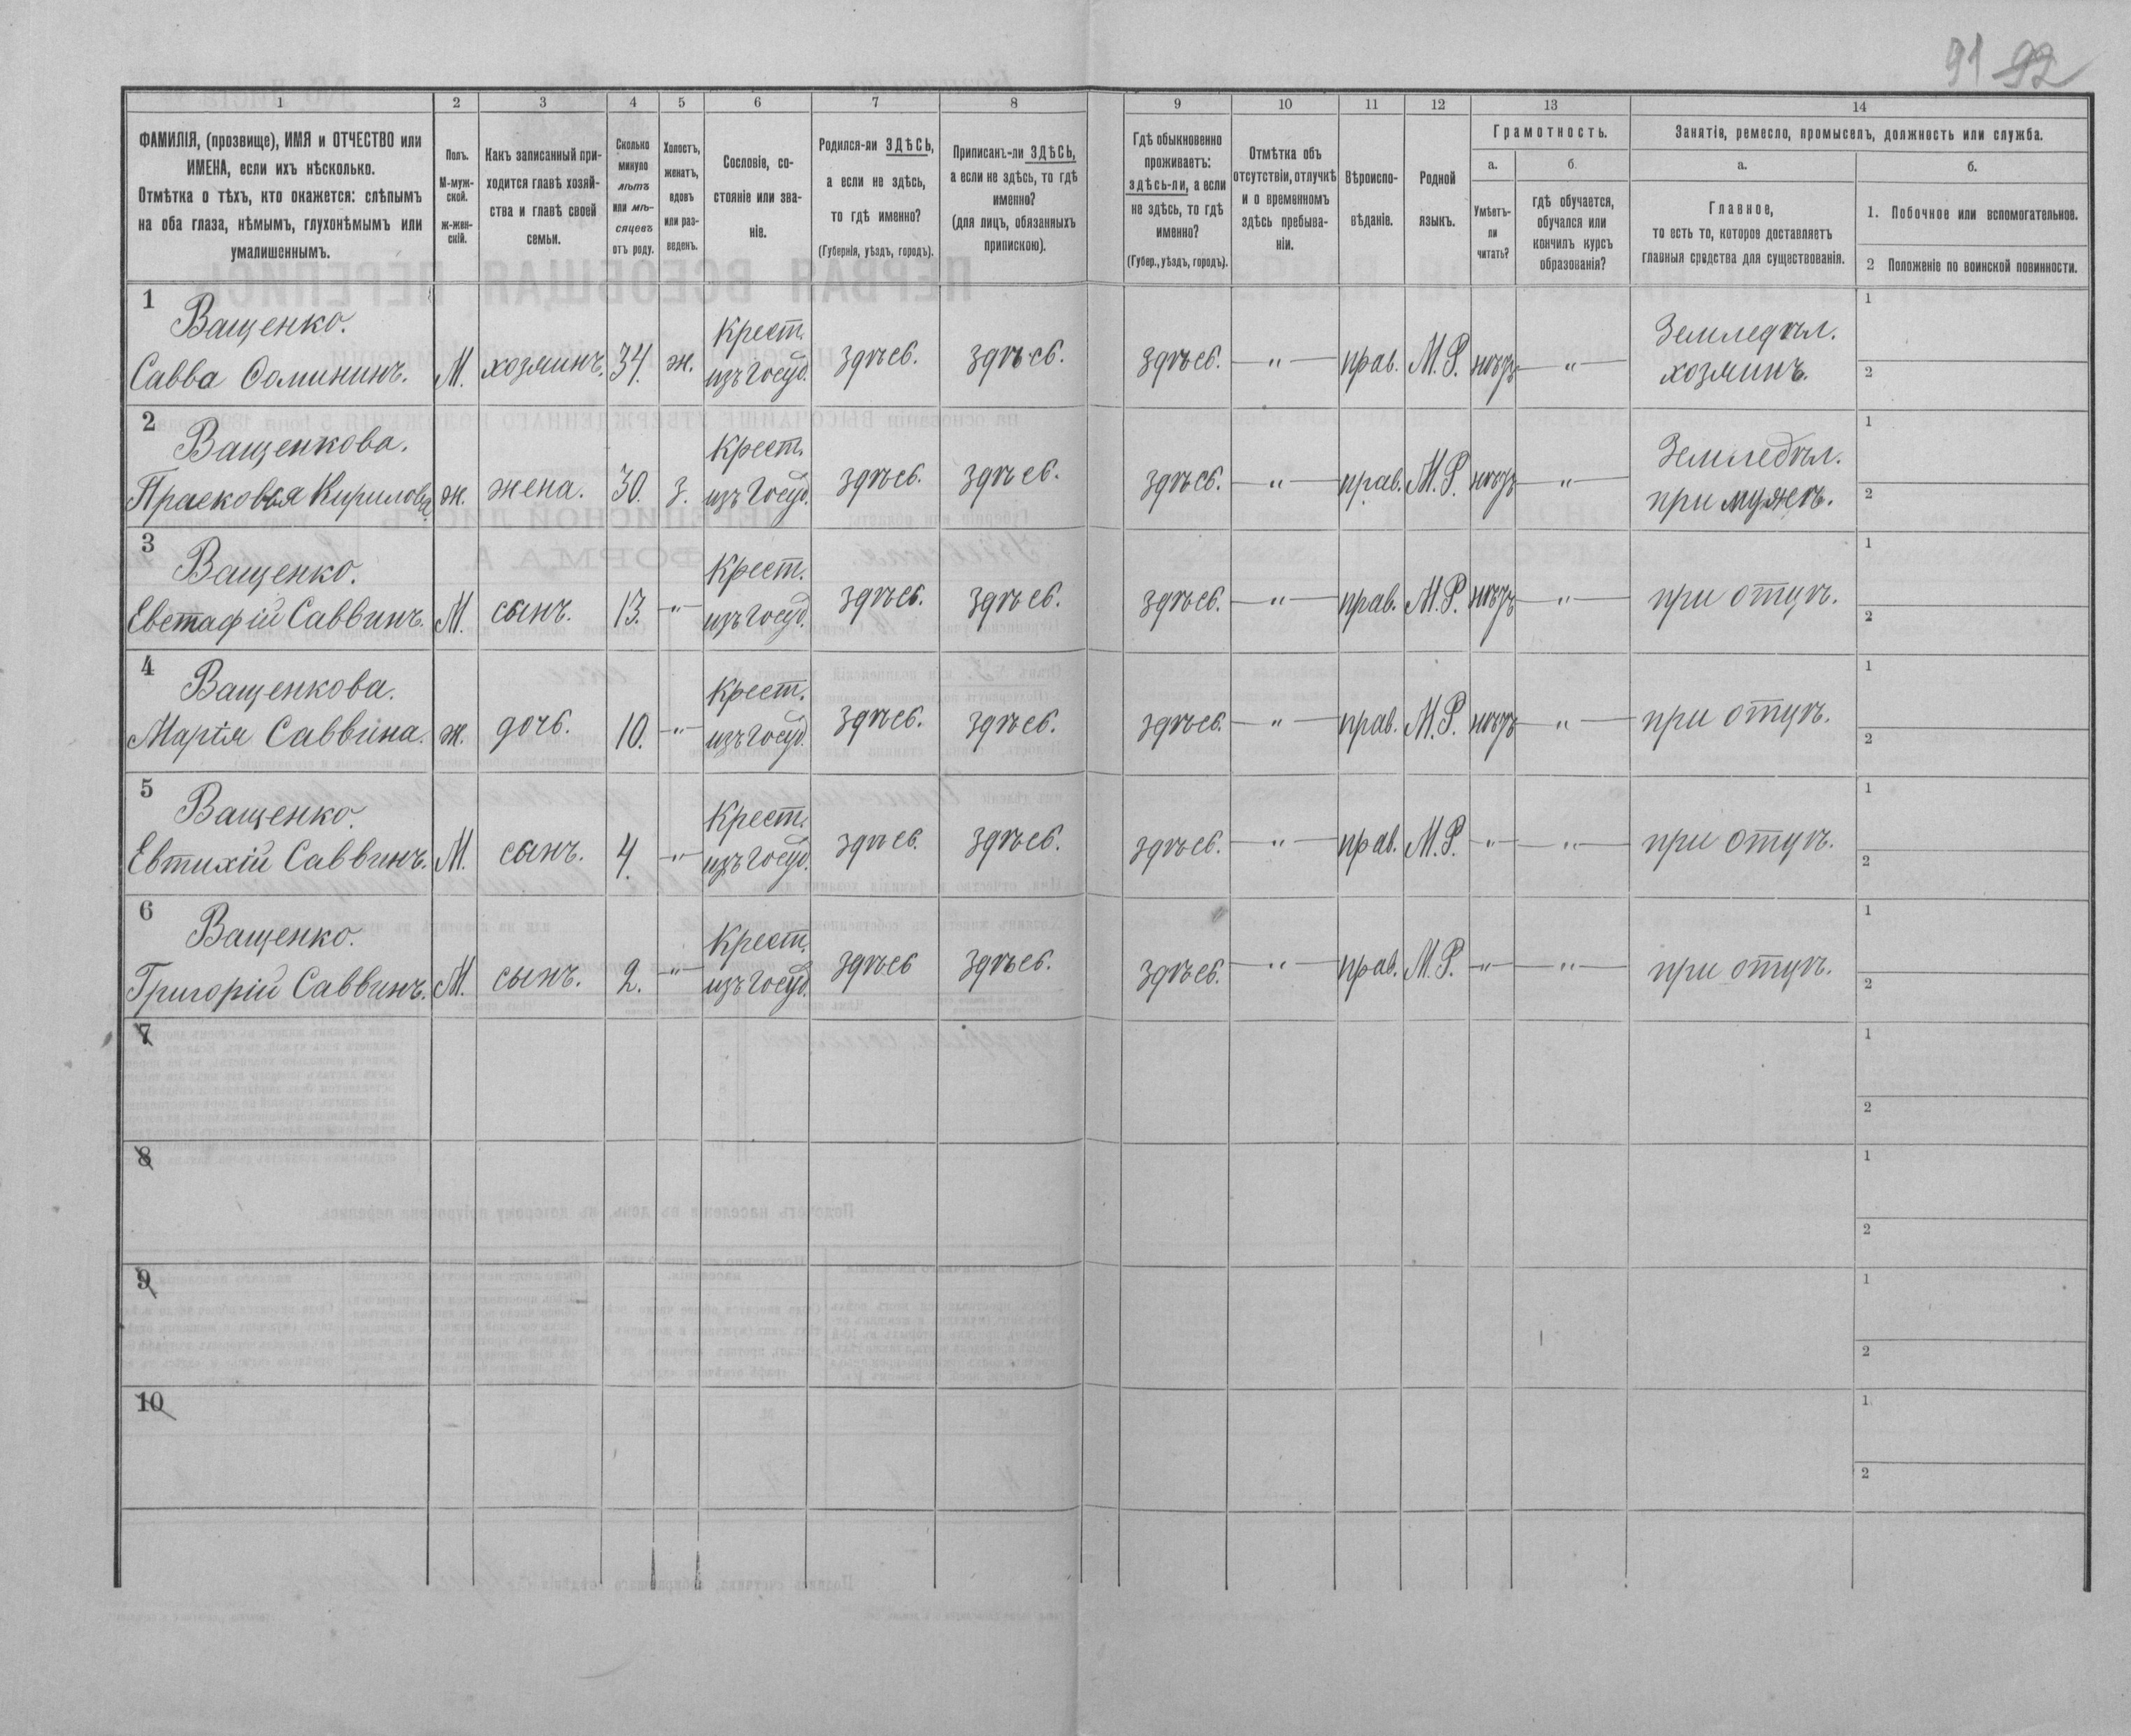 91 92
1 2 3 4 5 6 7 8 9 10 11 12 13 14
ФАМИЛІЯ, (прозвище), ИМЯ и ОТЧЕСТВО или
ИМЕНА, если ихъ нѣсколько.
Отмѣтка о тѣхъ, кто окажется: слѣпымъ
на оба глаза, нѣмымъ, глухонѣмымъ или
умалишеннымъ.
Полъ.
М-муж-
ской.
ж-жен-
скій.
Какъ записанный при-
ходится главѣ хозяй-
ства и главѣ своей
семьи.
Сколько
минуло
лѣтъ
или мѣ-
сяцевъ
отъ роду.
Холостъ,
женатъ,
вдовъ
или раз-
веденъ.
Сословіе, со-
стояніе или зва-
ніе.
Родился-ли ЗДѢСЬ,
а если не здѣсь,
то гдѣ именно?
(Губернія, уѣздъ, городъ).
Приписанъ-ли ЗДѢСЬ,
а если не здѣсь, то гдѣ
именно?
(для лицъ, обязанныхъ
припискою).
Гдѣ обыкновенно
проживаетъ:
здѣсь-ли, а если
не здѣсь, то гдѣ
именно?
(Губер., уѣздъ, городъ).
Отмѣтка объ
отсутствіи, отлучкѣ
и о временномъ
здѣсь пребыва-
ніи.
Вѣроиспо-
вѣданіе.
Родной
языкъ.
Грамотность.
а.
Умѣетъ-
ли
читать?
б.
гдѣ обучается,
обучался или
кончилъ курсъ
образованія?
Занятія, ремесло, промыселъ, должность или служба.
а.
Главное,
то есть то, которое доставляетъ
главныя средства для существованія.
б.
1. Побочное или вспомогательное.
2 Положеніе по воинской повинности.
1 Ващенко. Крест. Земледѣл. 1
Савва Фомининъ. М. хозяинъ. 34. ж. изъ Госуд. здѣсь. здѣсь. здѣсь. — " — прав. М. Р. нѣтъ — " — хозяинъ. 2
2 Ващенкова. Крест. Земледѣл. 1
Прасковья Кирилова. ж. жена. 30. з. изъ Госуд. здѣсь. здѣсь. здѣсь. — " — прав. М. Р. нѣтъ — " — при мужѣ. 2
3 Ващенко. Крест. 1
Евстафій Саввинъ. М. сынъ. 13. — " — изъ Госуд. здѣсь. здѣсь. здѣсь. — " — прав. М. Р. нѣтъ — " — при отцѣ. 2
4 Ващенкова. Крест. 1
Марія Саввина. ж. дочь. 10. — " — изъ Госуд. здѣсь. здѣсь. здѣсь. — " — прав. М. Р. нѣтъ — " — при отцѣ. 2
5 Ващенко. Крест. 1
Евтихій Саввинъ. М. сынъ. 4. — " — изъ Госуд. здѣсь. здѣсь. здѣсь. — " — прав. М. Р. — " — — " — при отцѣ. 2
6 Ващенко. Крест. 1
Григорій Саввинъ. М. сынъ. 2. — " — изъ Госуд. здѣсь здѣсь. здѣсь. — " — прав. М. Р. — " — — " — при отцѣ. 2
7 1
2
8 1
2
9 1
2
10 1
2